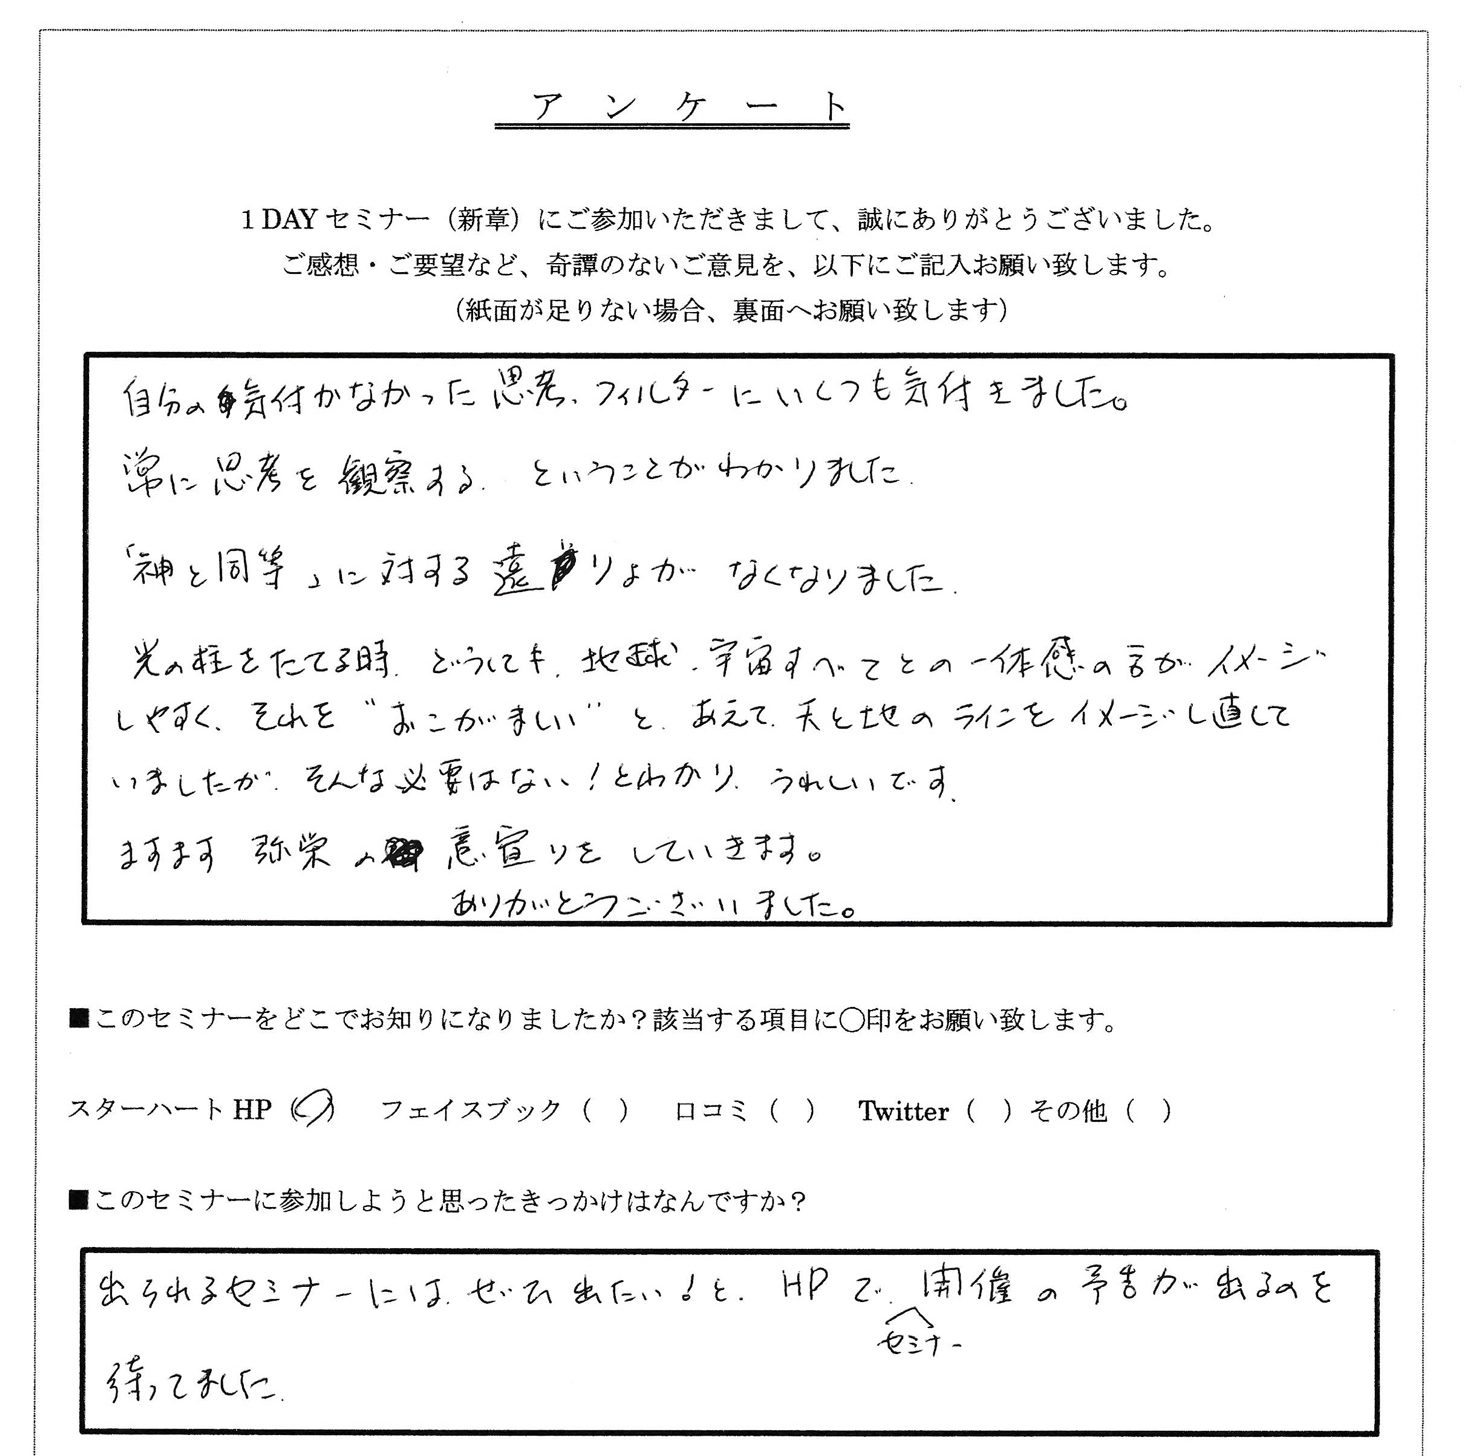 アンケート
1 DAY セミナー（新章）にご参加いただきまして、誠にありがとうございました。
ご感想・ご要望など、奇譚のないご意見を、以下にご記入お願い致します。
（紙面が足りない場合、裏面へお願い致します）
自分の気付かなかった思考、フィルターにいくつも気付きました。
常に思考を観察する、ということがわかりました。
「神と同等」に対する遠りょがなくなりました。
光の柱をたてる時、どうしても、地球、宇宙すべてとの一体感の方がイメージ
しやすく、それを"おこがましい"と、あえて、天と地のラインをイメージし直して
いましたが、そんな必要はない！とわかり、うれしいです。
ますます弥栄の意宣りをしていきます。
ありがとうございました。
■このセミナーをどこでお知りになりましたか？該当する項目に〇印をお願い致します。
スターハート HP（〇） フェイスブック（ ） 口コミ（ ） Twitter（ ）その他（ ）
■このセミナーに参加しようと思ったきっかけはなんですか？
出られるセミナーには、ぜひ出たい！と、HPで、セミナー開催の予告が出るのを
待ってました。